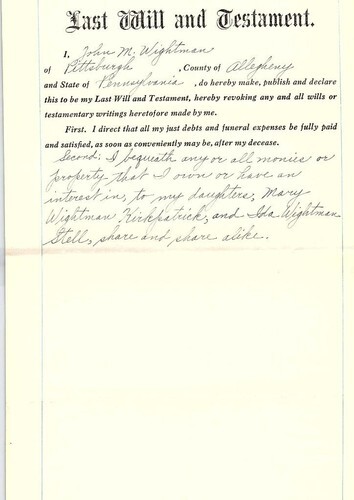 Last Will and Testament.
I, John M. Wightman
of Pittsburgh, County of Allegheny
and State of Pennsylvania, do hereby make, publish and declare
this to be my Last Will and Testament, hereby revoking any and all wills or
testamentary writings heretofore made by me.
First. I direct that all my just debts and funeral expenses be fully paid
and satisfied, as soon as conveniently may be, after my decease.
Second: I bequeath any or all monies or
property that I own or have an
interest in, to my daughters, Mary
Wightman Kirkpatrick, and Ida Wightman
Stell, share and share alike.